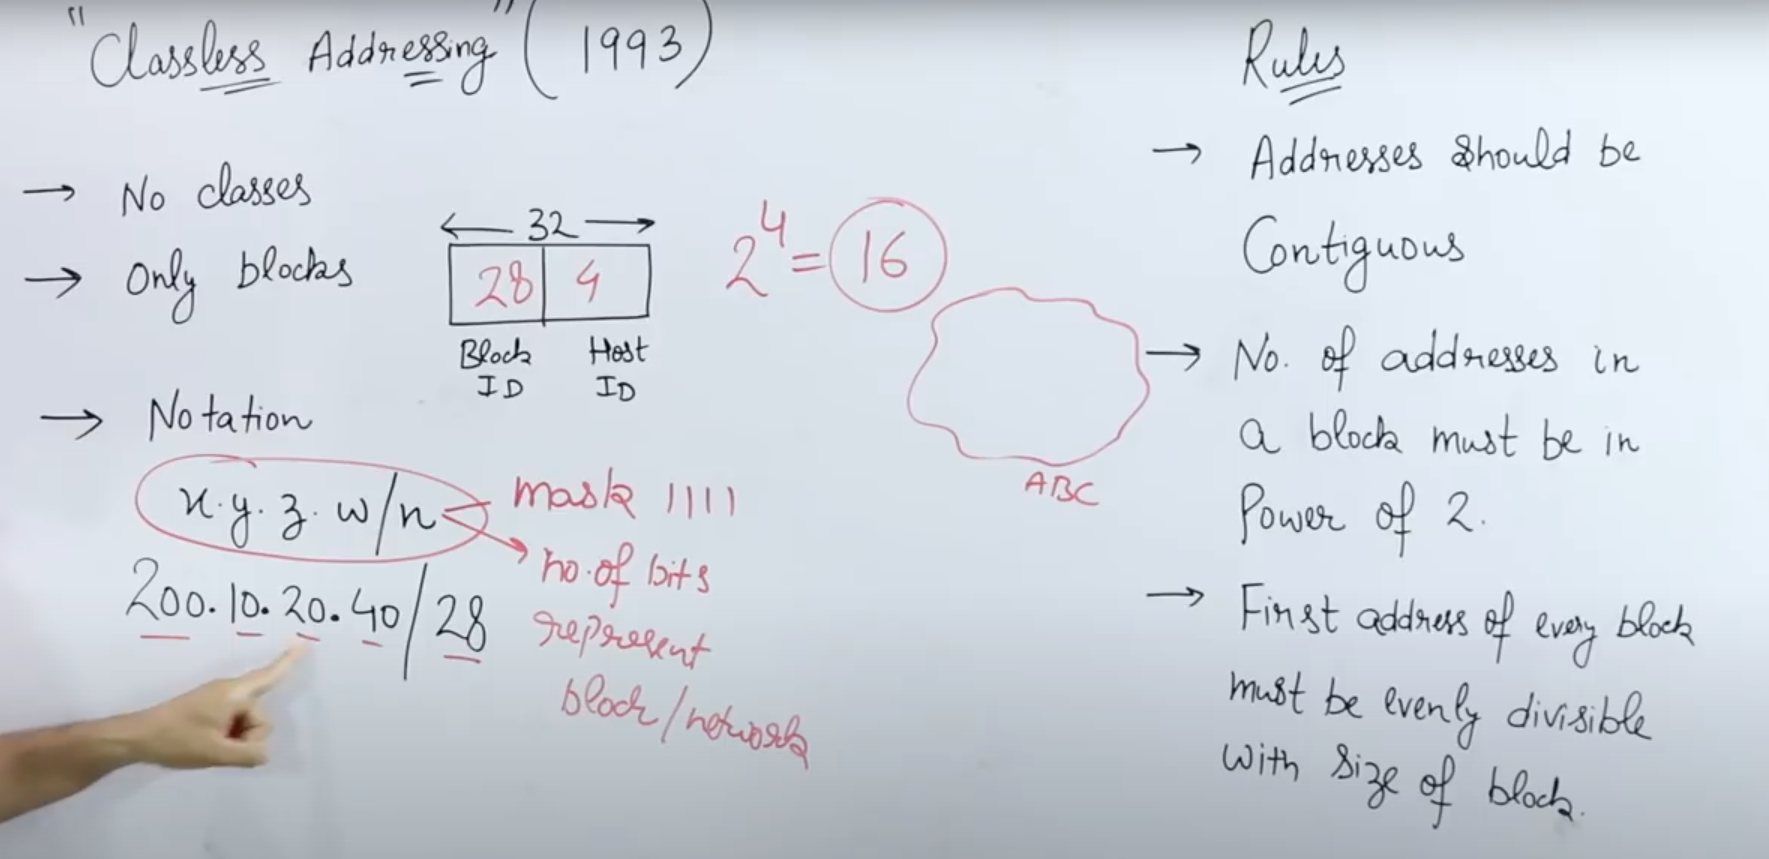 "Classless Addressing" (1993)
→ No classes
→ Only blocks
← 32 →
28 4
Block Host
ID ID
2⁴ = 16
ABC
→ Notation
x.y.z.w/n
mask 1111
no. of bits
represent
block/network
200.10.20.40/28
Rules
→ Addresses should be
Contiguous
→ No. of addresses in
a block must be in
Power of 2.
→ First address of every block
must be evenly divisible
with size of block.